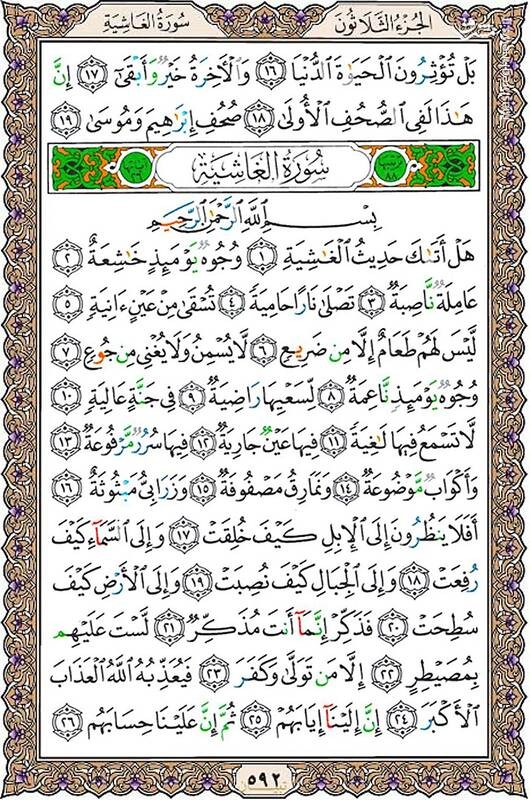 سُورَةُ الغَاشِيَةِ الجُزْءُ الثَّلَاثُونَ
بَلْ تُؤْثِرُونَ ٱلْحَيَوٰةَ ٱلدُّنْيَا ١٦ وَٱلْأٓخِرَةُ خَيْرٌ وَأَبْقَىٰٓ ١٧ إِنَّ
هَـٰذَا لَفِى ٱلصُّحُفِ ٱلْأُولَىٰ ١٨ صُحُفِ إِبْرَٰهِيمَ وَمُوسَىٰ ١٩
سُورَةُ الغَاشِيَةِ
بِسْمِ ٱللَّهِ ٱلرَّحْمَـٰنِ ٱلرَّحِيمِ
هَلْ أَتَىٰكَ حَدِيثُ ٱلْغَـٰشِيَةِ ١ وُجُوهٌ يَوْمَئِذٍ خَـٰشِعَةٌ ٢
عَامِلَةٌ نَّاصِبَةٌ ٣ تَصْلَىٰ نَارًا حَامِيَةً ٤ تُسْقَىٰ مِنْ عَيْنٍ ءَانِيَةٍ ٥
لَّيْسَ لَهُمْ طَعَامٌ إِلَّا مِن ضَرِيعٍ ٦ لَّا يُسْمِنُ وَلَا يُغْنِى مِن جُوعٍ ٧
وُجُوهٌ يَوْمَئِذٍ نَّاعِمَةٌ ٨ لِّسَعْيِهَا رَاضِيَةٌ ٩ فِى جَنَّةٍ عَالِيَةٍ ١٠
لَّا تَسْمَعُ فِيهَا لَـٰغِيَةً ١١ فِيهَا عَيْنٌ جَارِيَةٌ ١٢ فِيهَا سُرُرٌ مَّرْفُوعَةٌ ١٣
وَأَكْوَابٌ مَّوْضُوعَةٌ ١٤ وَنَمَارِقُ مَصْفُوفَةٌ ١٥ وَزَرَابِىُّ مَبْثُوثَةٌ ١٦
أَفَلَا يَنظُرُونَ إِلَى ٱلْإِبِلِ كَيْفَ خُلِقَتْ ١٧ وَإِلَى ٱلسَّمَآءِ كَيْفَ
رُفِعَتْ ١٨ وَإِلَى ٱلْجِبَالِ كَيْفَ نُصِبَتْ ١٩ وَإِلَى ٱلْأَرْضِ كَيْفَ
سُطِحَتْ ٢٠ فَذَكِّرْ إِنَّمَآ أَنتَ مُذَكِّرٌ ٢١ لَّسْتَ عَلَيْهِم
بِمُصَيْطِرٍ ٢٢ إِلَّا مَن تَوَلَّىٰ وَكَفَرَ ٢٣ فَيُعَذِّبُهُ ٱللَّهُ ٱلْعَذَابَ
ٱلْأَكْبَرَ ٢٤ إِنَّ إِلَيْنَآ إِيَابَهُمْ ٢٥ ثُمَّ إِنَّ عَلَيْنَا حِسَابَهُم ٢٦
٥٩٢